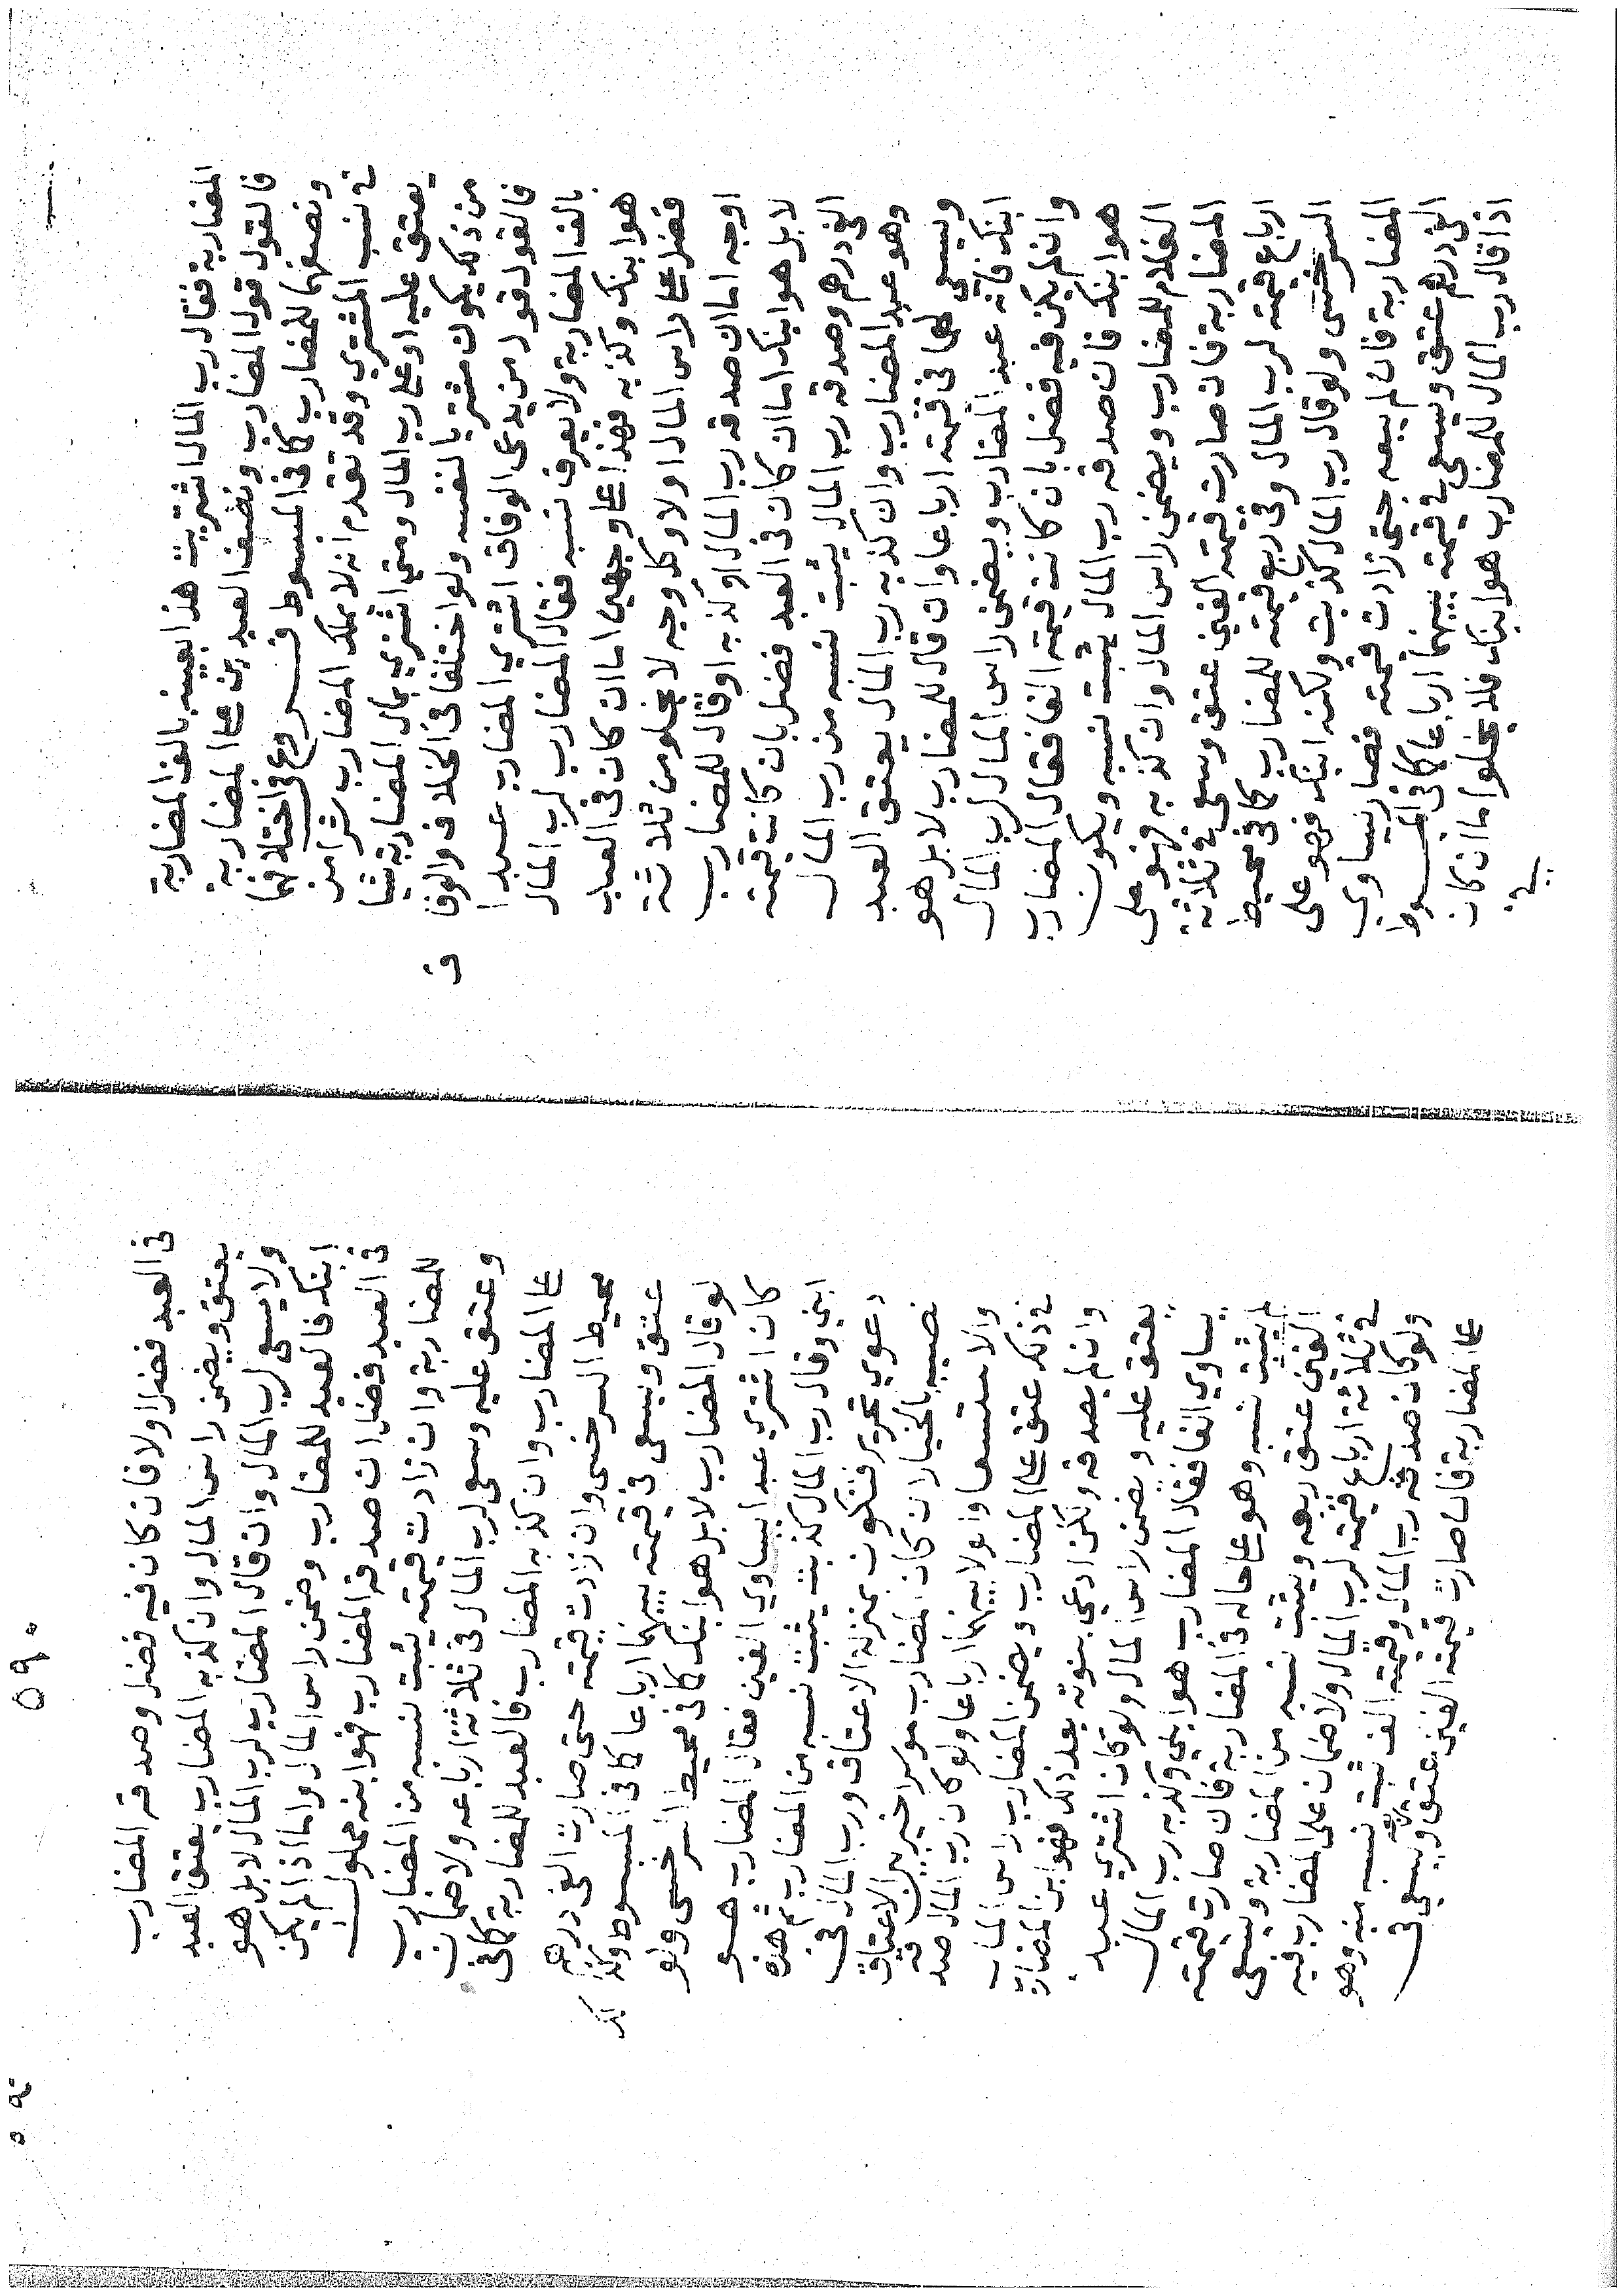 المضاربة فقال رب المال اشتريت هذا بعينه بالف المضاربة
فالقول قول المضارب ونصف العبدين على المضاربة
ونصفهما للمضارب كما في المبسوط فروع في اختلافهما
في نسب المشتري وقد تقدم انه لا يملك المضارب شرا من
يعتق عليه او على رب المال ومتى اشتري بمال المضاربة شيا
من ذلك يكون مشتريا لنفسه ولو اختلفا في الخلاف والوفاق
فالقول قول من يدعى الوفاق اشتري المضارب عبدا
بالف المضاربة ولا يعرف نسبه فقال المضارب لرب المال
هو ابنك وكذبه فهذا على وجهين اما ان كان في العبد
فضل على راس المال او لا وكل وجه لا يخلو من ثلاثة
اوجه اما ان صدقه رب المال او كذبه او قال للمضارب
لا بل هو ابنك اما ان كان في العبد فضل بان كانت قيمته
الفي درهم وصدقه رب المال يثبت نسبه من رب المال
وهو عبد المضارب وان كذبه رب المال يعتق العبد
ويسعى لهما في قيمته ارباعا وان قال للمضارب لا بل هو
ابنك فانه عبد المضارب ويضمن راس المال لرب المال
وان لم يكن فيه فضل بان كانت قيمته الفا فقال المضارب
هو ابنك فان صدقه رب المال يثبت نسبه ويكون
الغلام للمضارب ويضمن راس المال وان كذبه فهو على
المضاربة فان صارت قيمته الفين عتق وسعى في ثلاثة
ارباع قيمته لرب المال وفي ربع قيمته للمضارب كما في محيط
السرخسى ولو قال رب المال كذبت ولكنه ابنك فهو على
المضاربة فان لم يبعه حتى زادت قيمته فصار يساوي
الفي درهم عتق ويسعى في قيمته بينهما ارباعا كما في المبسوط
اذا قال رب المال للمضارب هو ابنك فلا يخلوا ما ان كان
في
٥٩٠
في العبد فضل او لا فان كان فيه فضل وصدقه المضارب
يعتق ويضمن راس المال وان كذبه المضارب يعتق العبد
ولا يسعى لرب المال وان قال المضارب لرب المال لا بل هو
ابنك فالعبد للمضارب وضمن راس المال واما اذا لم يكن
في العبد فضل ان صدقه المضارب فهو ابنه مملوك
للمضاربة وان زادت قيمته يثبت نسبه من المضارب
وعتق عليه وسعى لرب المال في ثلاثة ارباعه ولا ضمان
على المضارب وان كذبه المضارب فالعبد للمضاربة كما في
محيط السرخسى وان زادت قيمته حتى صارت الفي درهم
عتق ويسعى في قيمته بينهما ارباعا كما في المبسوط وكذا
لو قال المضارب لا بل هو ابنك كما في محيط السرخسى ولو
كان اشتري عبدا يساوي الفين فقال المضارب هو
ابني وقال رب المال كذبت يثبت نسبه من المضارب ثم هذه
دعوي تحرير فتكون بمنزلة الاعتاق ورب المال في
نصيبه بالخيار ان كان المضارب موسرا خير بين الاعتاق
والاستسعا والولا بينهما ارباعا ولو كان رب المال صدقه
في ذلك عتق على المضارب ويضمن المضارب راس المال
وان لم يصدقه ولكن ادعي بنوته بعد ذلك فهو ابن المضارب
يعتق عليه ويضمن راس المال ولو كان اشتري عبدا
يساوي الفا فقال المضارب هو ابني وكذبه رب المال
لم يثبت نسبه وهو على حاله في المضاربة فان صارت قيمته
الفين عتق ربعه ويثبت نسبه من المضاربة ويسعى
في ثلاثة ارباع قيمته لرب المال ولا ضمان على المضارب فيه
ولو كان صدقه رب المال وقيمته الف ثبت نسبه منه وهو
على المضاربة فان صارت قيمته الفين عتق ويسعى في